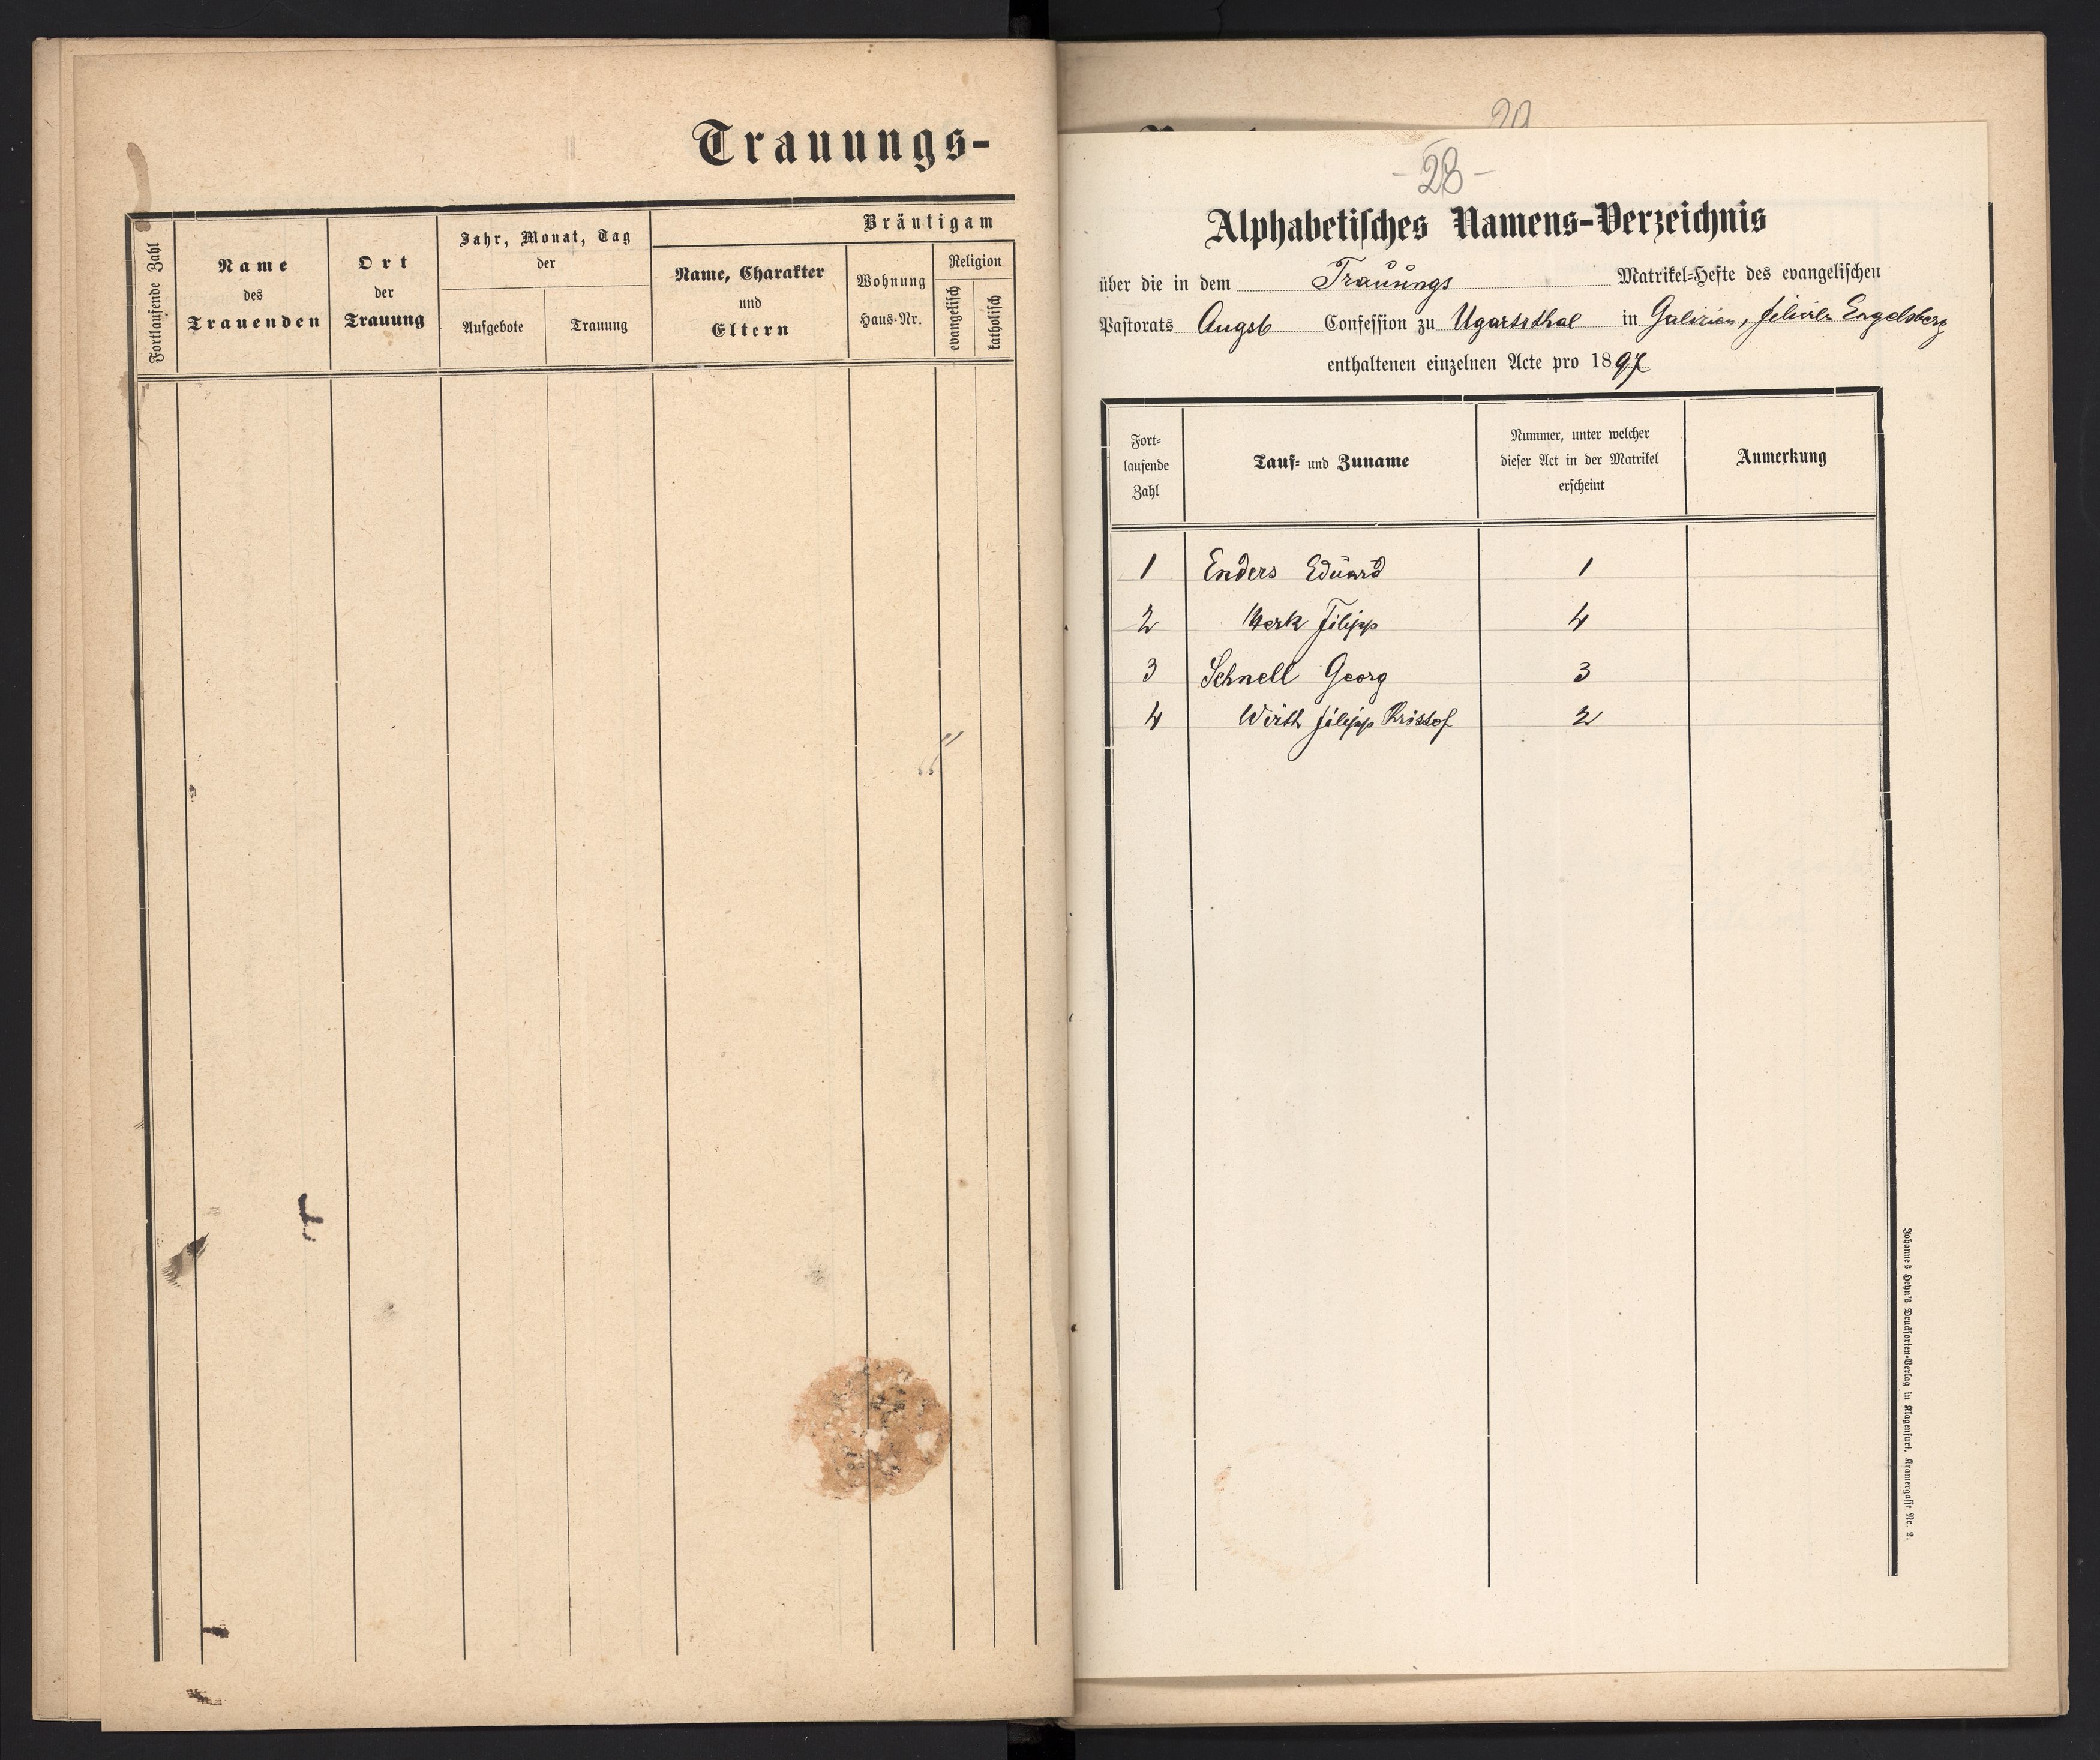 Trauungs-
Fortlaufende Zahl
Name
des
Trauenden
Ort
der
Trauung
Jahr, Monat, Tag
der
Aufgebote
Trauung
Bräutigam
Name, Charakter
und
Eltern
Wohnung
Haus-Nr.
Religion
evangelisch
katholisch
29
- 28 -
Alphabetisches Namens-Verzeichnis
über die in dem Trauungs Matrikel-Hefte des evangelischen
Pastorats Augsb Confession zu Ugartsthal in Galizien, Engelsberg
enthaltenen einzelnen Acte pro 1897
Fort-
laufende
Zahl
Tauf- und Zuname
Nummer, unter welcher
dieser Act in der Matrikel
erscheint
Anmerkung
1 Enders Eduard 1
2 Merk Filipp 4
3 Schnell Georg 3
4 Wirth Filipp Kristof 2
Johannes Heyn's Drucksorten-Verlag in Klagenfurt, Kramergasse Nr. 2.